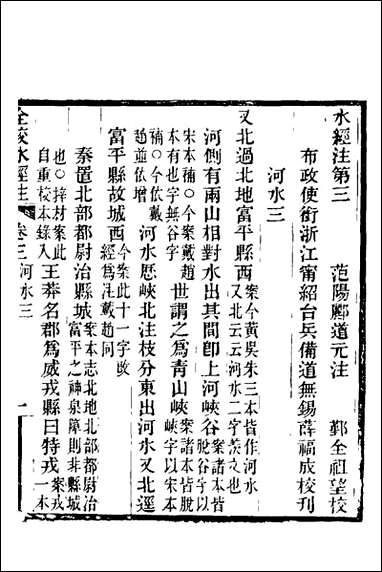 水經注第三　范陽酈道元注　鄞全祖望校
布政使銜浙江甯紹台兵備道無錫薛福成校刊
河水三
又北過北地富平縣西案今黃吳朱三本皆作河水又北云云河水二字羨文也
河側有兩山相對水出其間卽上河峽谷案諸本皆脫谷字以
宋本補○今案戴趙本有也字無谷字世謂之爲青山峽案諸本皆脫峽字以宋本
補○今依戴趙並依增河水厯峽北注枝分東出河水又北逕
富平縣故城西今案此十一字故經爲注戴趙同
秦置北部都尉治縣城案本志北地北部都尉治富平之神泉障則非縣城
也○梓材案此自重校本錄入王莽名郡爲威戎縣曰特戎案戎一本
全校水經注　卷三河水三　一